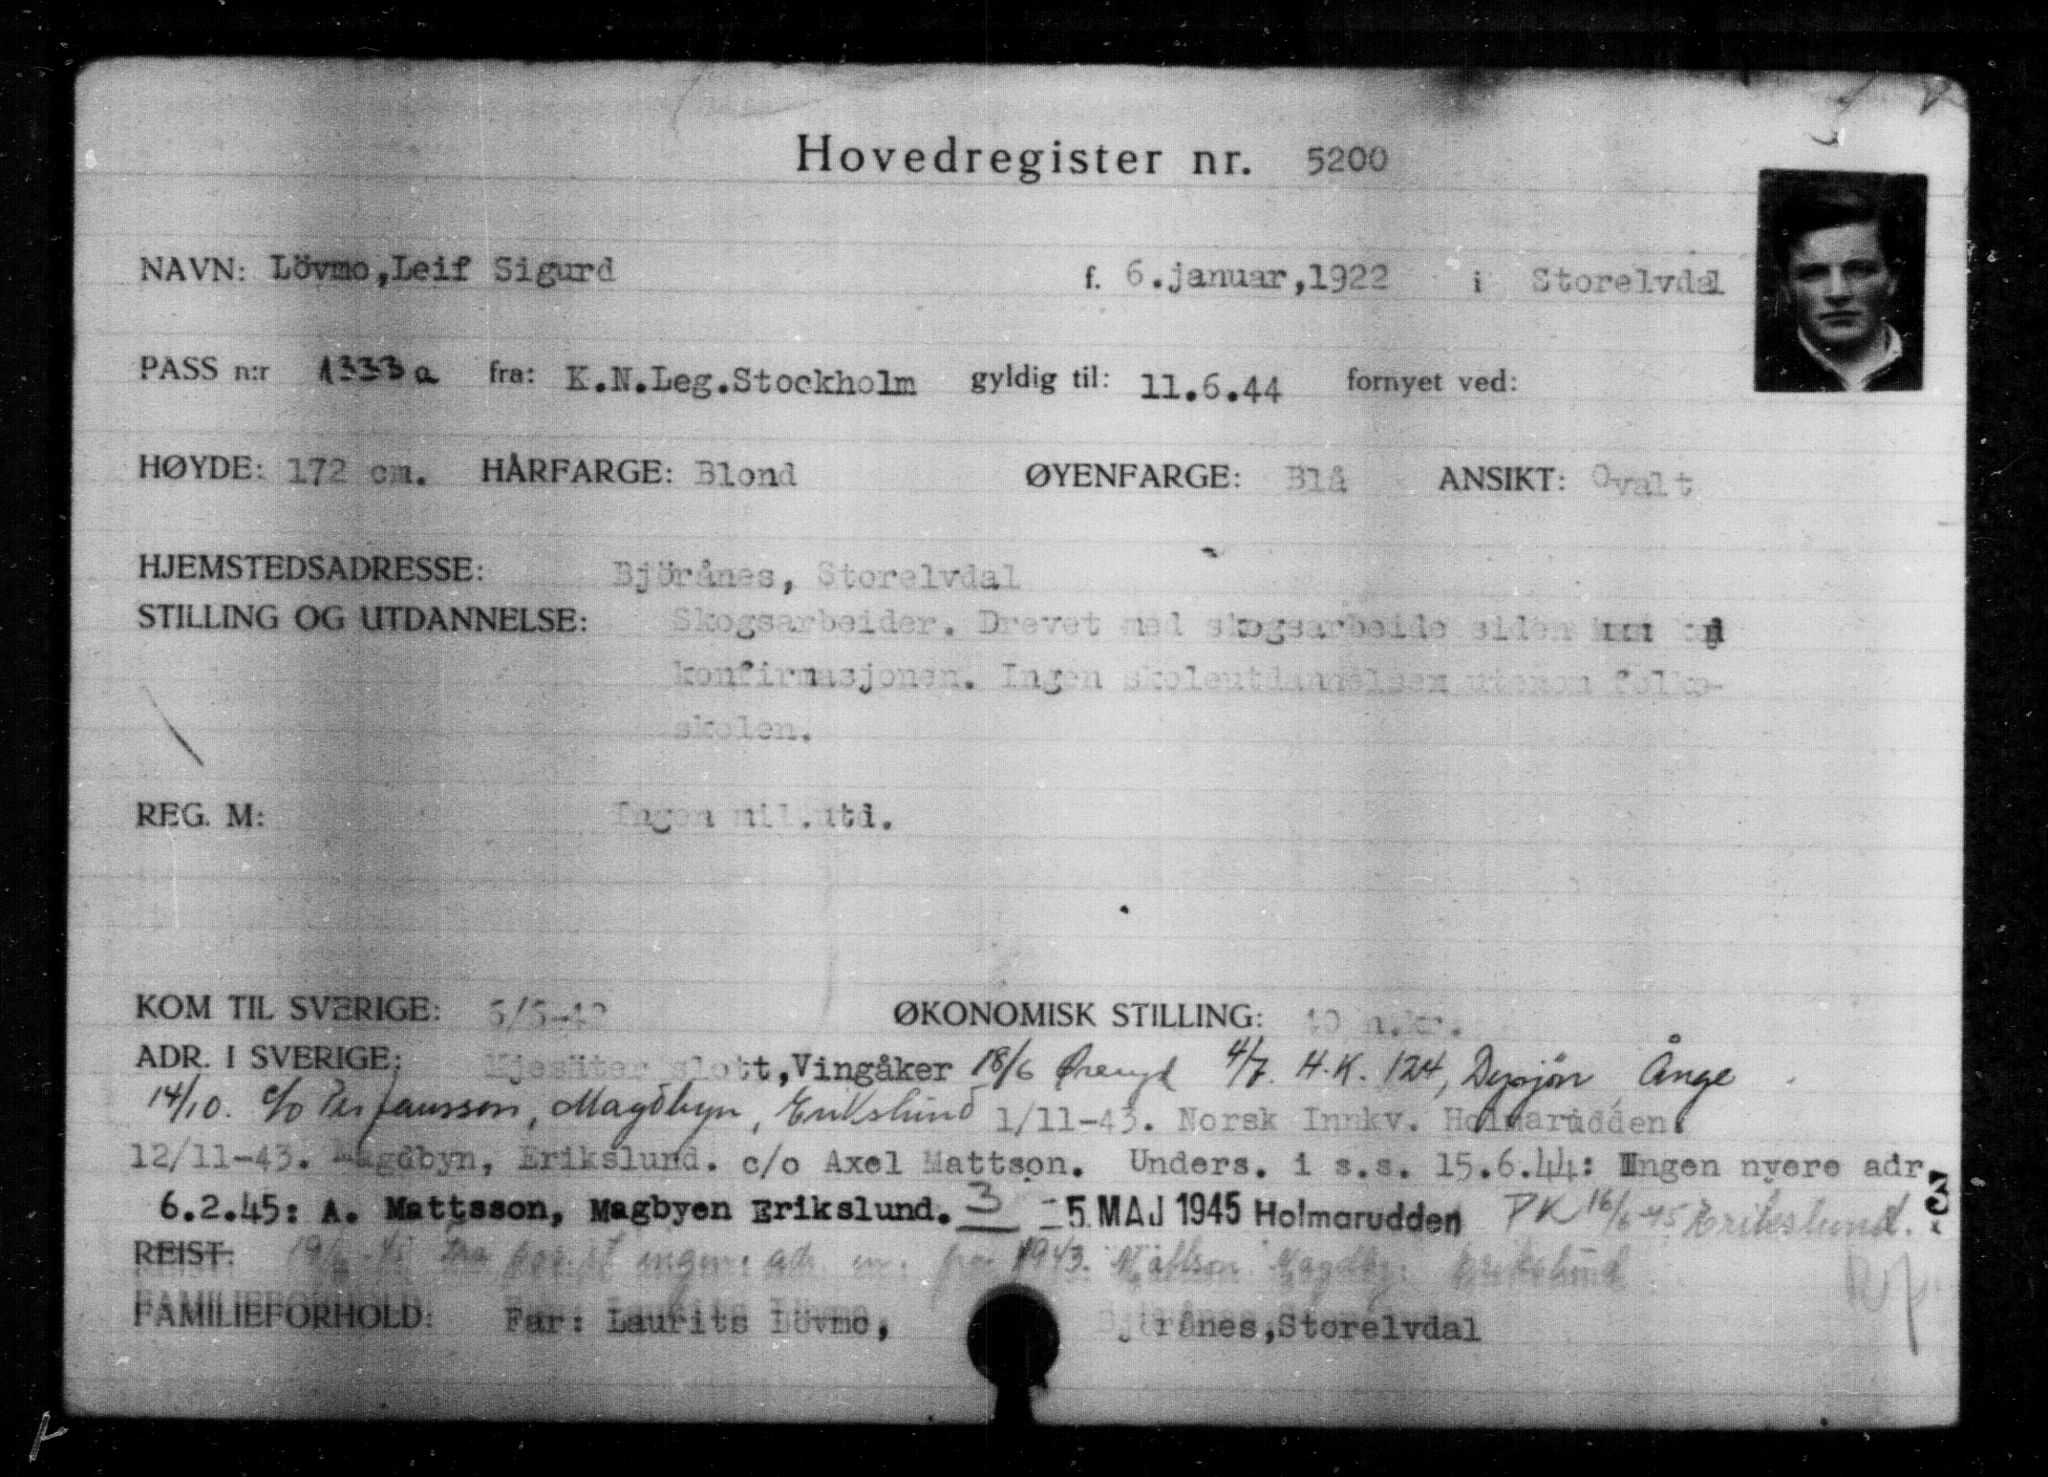 Hovedregister nr. 5200
NAVN: Lövmo,Leif Sigurd f. 6.januar,1922 i Storelvdal
PASS n:r 1333a fra: K.N.Leg.Stockholm gyldig til: 11.6.44 fornyet ved:
HØYDE: 172 cm. HÅRFARGE: Blond ØYENFARGE: Blå ANSIKT: Ovalt
HJEMSTEDSADRESSE: Björånes, Storelvdal
STILLING OG UTDANNELSE: Skogsarbeider. Drevet med skogsarbeide siden
konfirmasjonen. Ingen skoleutdannelsen utenom folke-
skolen.
REG. M: Ingen mil.utd.
KOM TIL SVERIGE: ØKONOMISK STILLING: 40 n.kr.
ADR. I SVERIGE: Kjesäter slott,Vingåker 18/6 4/7. H.K. 124, Ånge
14/10. c/o Per Jansson, Magdbyn, Erikslund 1/11-43. Norsk Innkv. Holmarudden.
12/11-43. Magdbyn, Erikslund. c/o Axel Mattson. Unders. i s.s. 15.6.44: Ingen nyere adr.
6.2.45: A. Mattsson, Magbyen Erikslund. 3 -5. MAJ 1945 Holmarudden PK 16/6-45 Erikslund. 3
REIST: ingen adr. 1943. Mattson Magdby. Erikslund
FAMILIEFORHOLD: Far: Laurits Lövmo, Björånes,Storelvdal